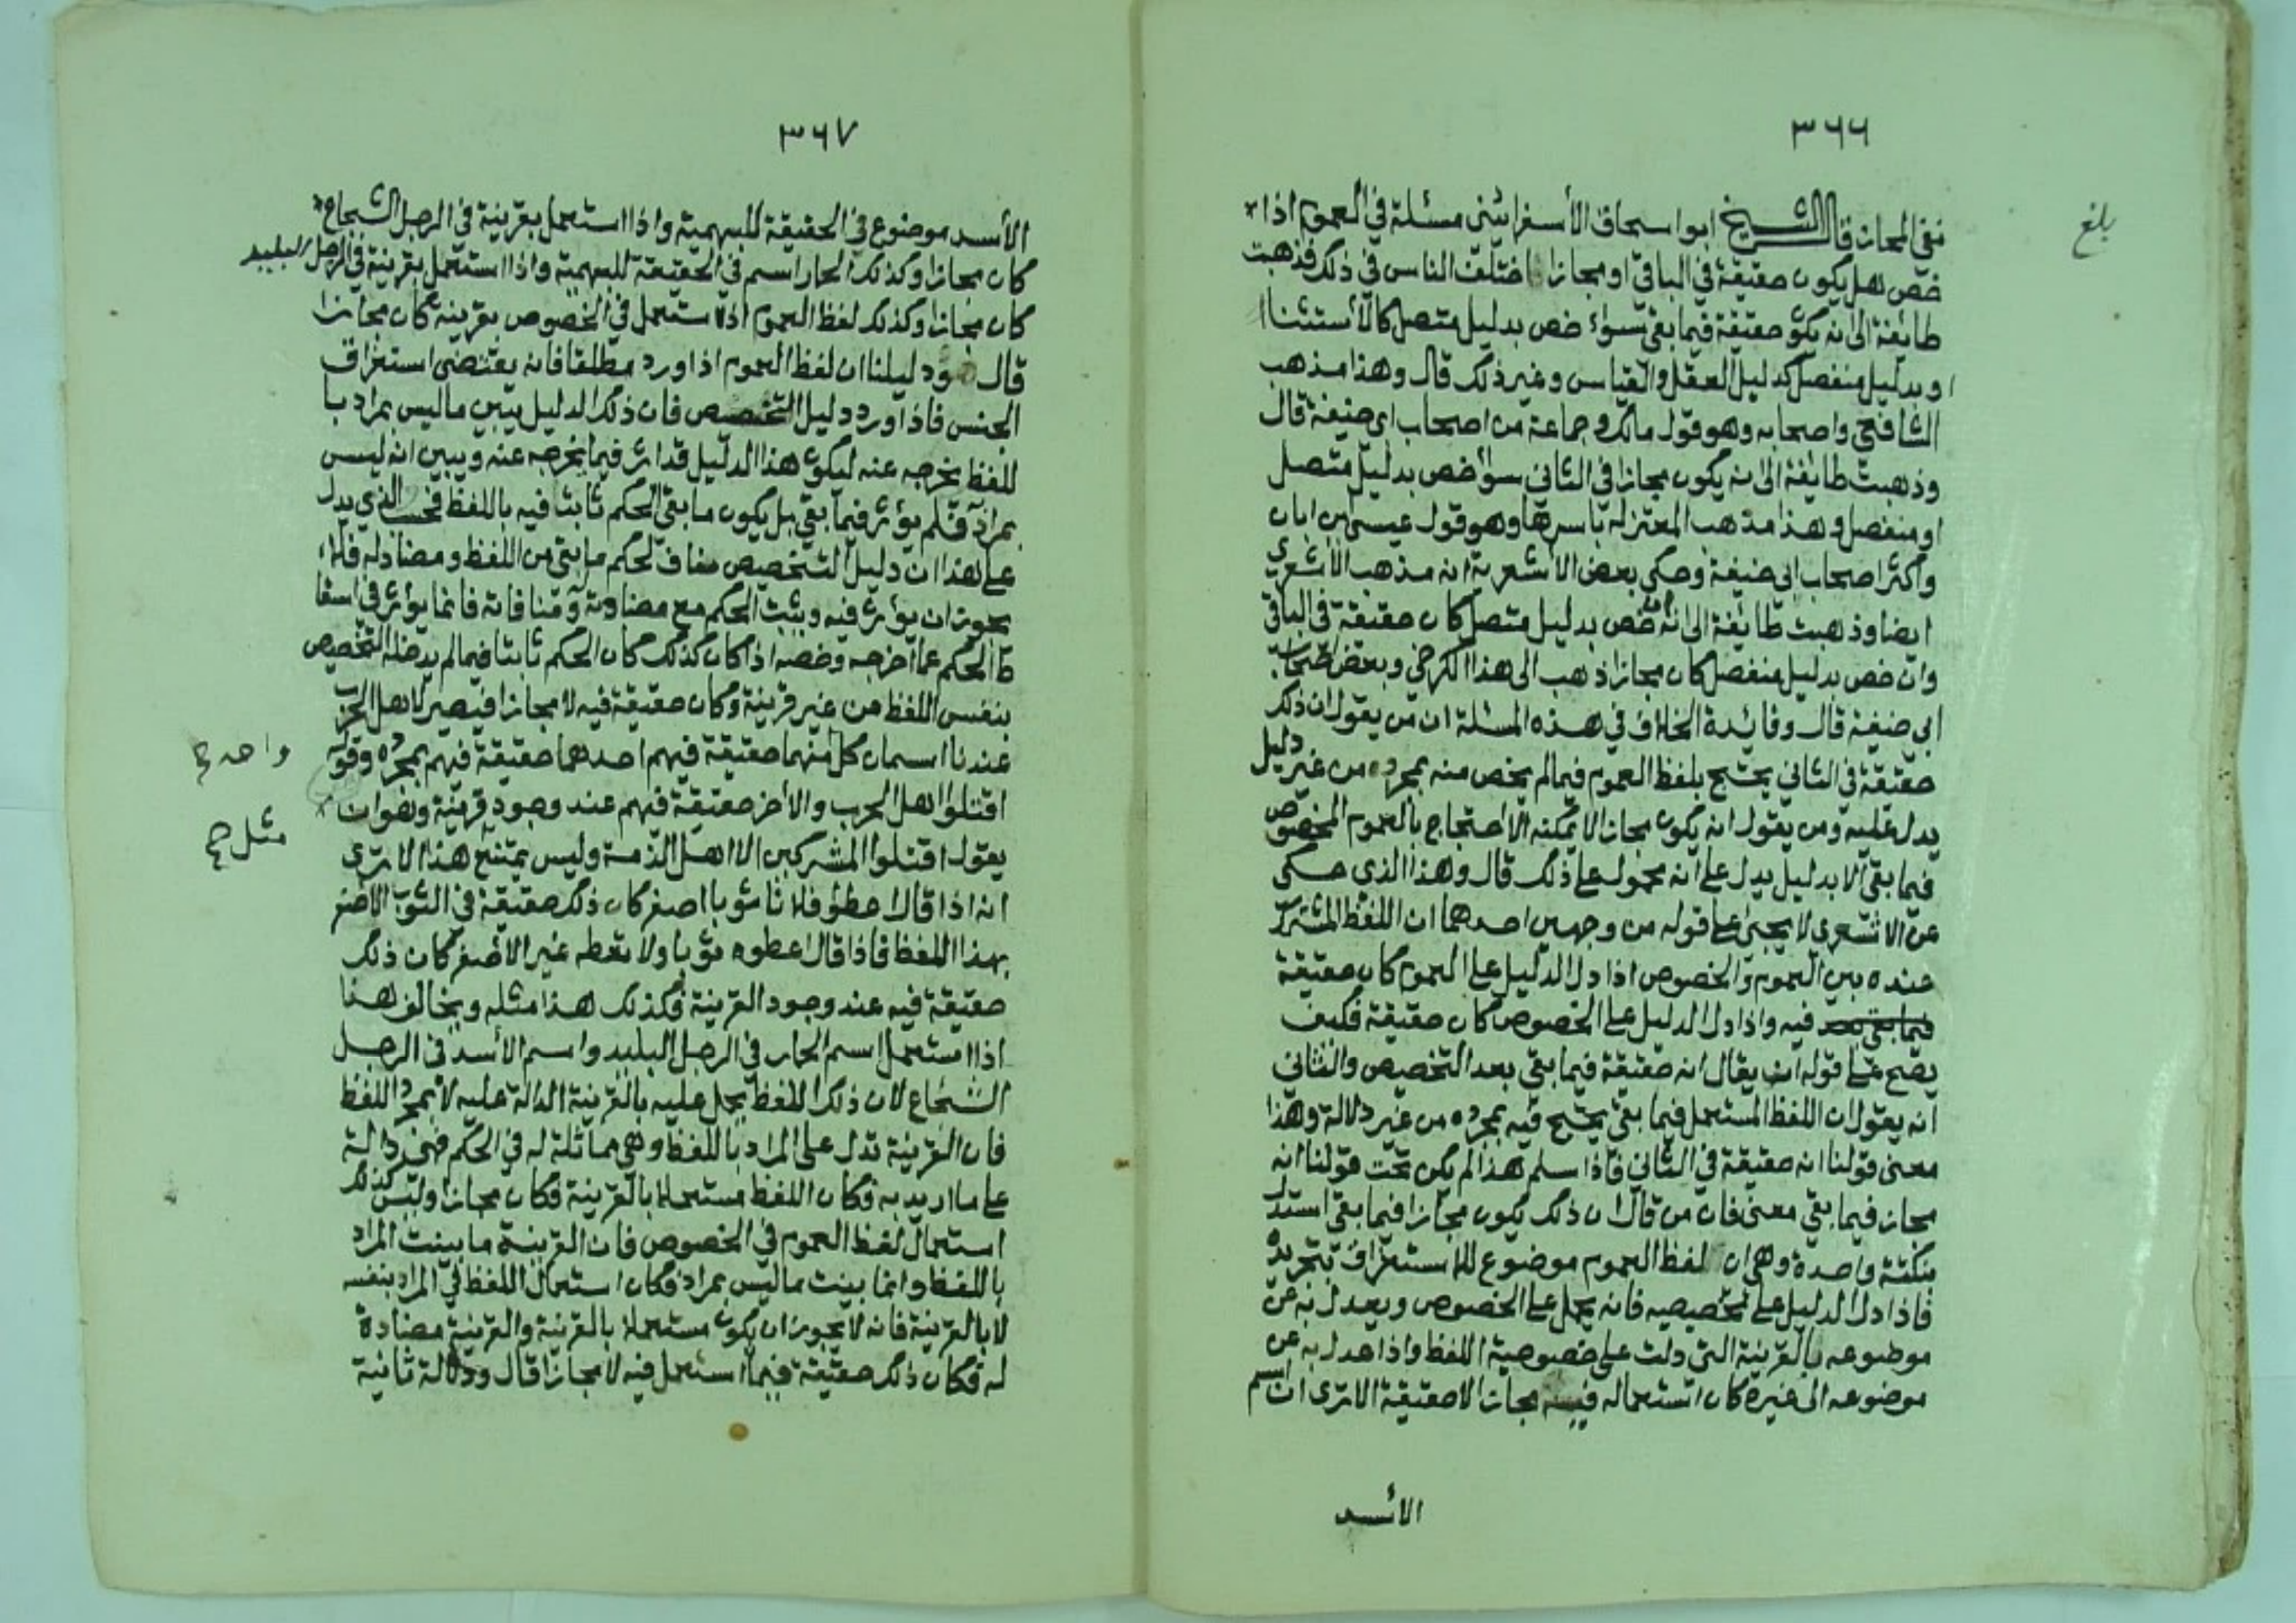 ٣٦٦
بلغ
نفى المجاز قال الشيخ ابو اسحاق الأسفرائينى مسئلة في العموم اذا
خصّ هل يكون حقيقة في الباقي او مجازا اختلف الناس في ذلك فذهبت
طائفة الى انه يكون حقيقة فيما بقي سواء خص بدليل متصل كالأستثنا
او بدليل منفصل كدليل العقل والقياس وغير ذلك قال وهذا مذهب
الشافعي واصحابه وهو قول مالك وجماعة من اصحاب ابى حنيفة قال
وذهبت طايفة الى انه يكون مجازا في الثاني سواء خص بدليل متصل
او منفصل وهذا مذهب المعتزله بأسرها وهو قول عيسى ابن ابان
وأكثر اصحاب ابى حنيفة وحكى بعض الاشعرية انه مذهب الأشعري
ايضا وذهبت طايفة الى انه ان خص بدليل متصل كان حقيقة في الباقي
وان خص بدليل منفصل كان مجازا ذهب الى هذا الكرخي وبعض اصحاب
ابي حنيفة قال وفائدة الخلاف في هذه المسئلة ان من يقول ان ذلك
حقيقة في الثاني يحتج بلفظ العموم فيما لم يخص منه بمجرده من غير دليل
يدل عليه ومن يقول انه يكون مجازا لا يمكنه الاحتجاج بالعموم المخصوص
فيما بقي الا بدليل يدل على انه محمول على ذلك قال وهذا الذي حكى
عن الاشعرى لا يجئ على قوله من وجهين احدهما ان اللفظ المشترك
عنده بين العموم والخصوص اذا دل الدليل على العموم كان حقيقة
فيما بقي بعد فيه واذا دل الدليل على الخصوص كان حقيقة فكيف
يصح على قوله ان يقال انه حقيقة فيما بقي بعد التخصيص والثاني
انه يقول ان اللفظ المستعمل فيما بقي يحتج فيه بمجرده من غير دلالة وهذا
معنى قولنا انه حقيقة في الثاني فاذا سلم هذا لم يكن تحت قولنا انه
مجاز فيما بقي معنى فان من قال ان ذلك يكون مجازا فيما بقي استدل
بنكتة واحدة وهي ان لفظ العموم موضوع للاستغراق بتجريده
فاذا دل الدليل على تخصيصه فانه يحمل على الخصوص ويعدل به عن
موضوعه بالقرينة التي دلت على خصوصية اللفظ واذا عدل به عن
موضوعه الى غيره كان استعماله فيه مجازا لا حقيقة الا ترى ان اسم
الأسد
٣٦٧
الأسد موضوع في الحقيقة للبهيمية واذا استعمل بقرينة في الرجل الشجاع
كان مجازا وكذلك الحمار اسم في الحقيقة للبهيمة واذا استعمل بقرينة في الرجل البليد
كان مجازا وكذلك لفظ العموم اذا استعمل في الخصوص بقرينة كان مجازا
قال ودليلنا ان لفظ العموم اذا ورد مطلقا فانه يقتضى استغراق
الجنس فاذا ورد دليل التخصيص فان ذلك الدليل يبين ما ليس بمراد با
للفظ يخرجه عنه ليكون هذا الدليل قد اثر فيما يخرجه عنه ويبين انه ليس
بمراد فلم يؤثر فيما بقي بل يكون ما بقي الحكم ثابتا فيه باللفظ فحسب الذي يدل
على هذا ان دليل التخصيص مناف لحكم ما بقي من اللفظ ومضاد له فلا
يجوز ان يؤثر فيه ويثبت الحكم مع مضادته ومنافاته فانما يؤثر في اسقا
ط الحكم عما اخرجه وخصه اذا كان كذلك كان الحكم ثابتا فيما لم يدخله التخصيص
بنفس اللفظ من غير قرينة وكان حقيقة فيه لا مجازا فيصير لاهل الحرب
عندنا اسمان كل منهما حقيقة فيهم احدهما حقيقة فيهم بمجرده وقوله
واحد
اقتلوا اهل الحرب والاخر حقيقة فيهم عند وجود قرينة وهو ان
مثل صح
يقول اقتلوا المشركين الا اهل الذمة وليس يمتنع هذا الا ترى
انه اذا قال اعطو فلانا ثوبا اصفر كان ذلك حقيقة في الثوب الاصفر
بهذا اللفظ فاذا قال اعطوه ثوبا ولا تعطه غير الاصفر كان ذلك
حقيقة فيه عند وجود القرينة فكذلك هذا مثله ويخالف هذا
اذا استعمل اسم الحمار في الرجل البليد واسم الأسد في الرجل
الشجاع لان ذلك اللفظ يحمل عليه بالقرينة الدالة عليه لا بمجرد اللفظ
فان القرينة تدل على المراد باللفظ وهي مماثلة له في الحكم فهي دالة
على ما اريد به فكان اللفظ مستعملا بالقرينة فكان مجازا وليس كذلك
استعمال لفظ العموم في الخصوص فان القرينة ما بينت المراد
باللفظ وانما بينت ما ليس بمراد فكان استعمال اللفظ في المراد بنفسه
لا بالقرينة فانه لا يجوز ان يكون مستعملا بالقرينة والقرينة مضادة
له فكان ذلك حقيقة فيما استعمل فيه لا مجازا قال ودلالة ثانية